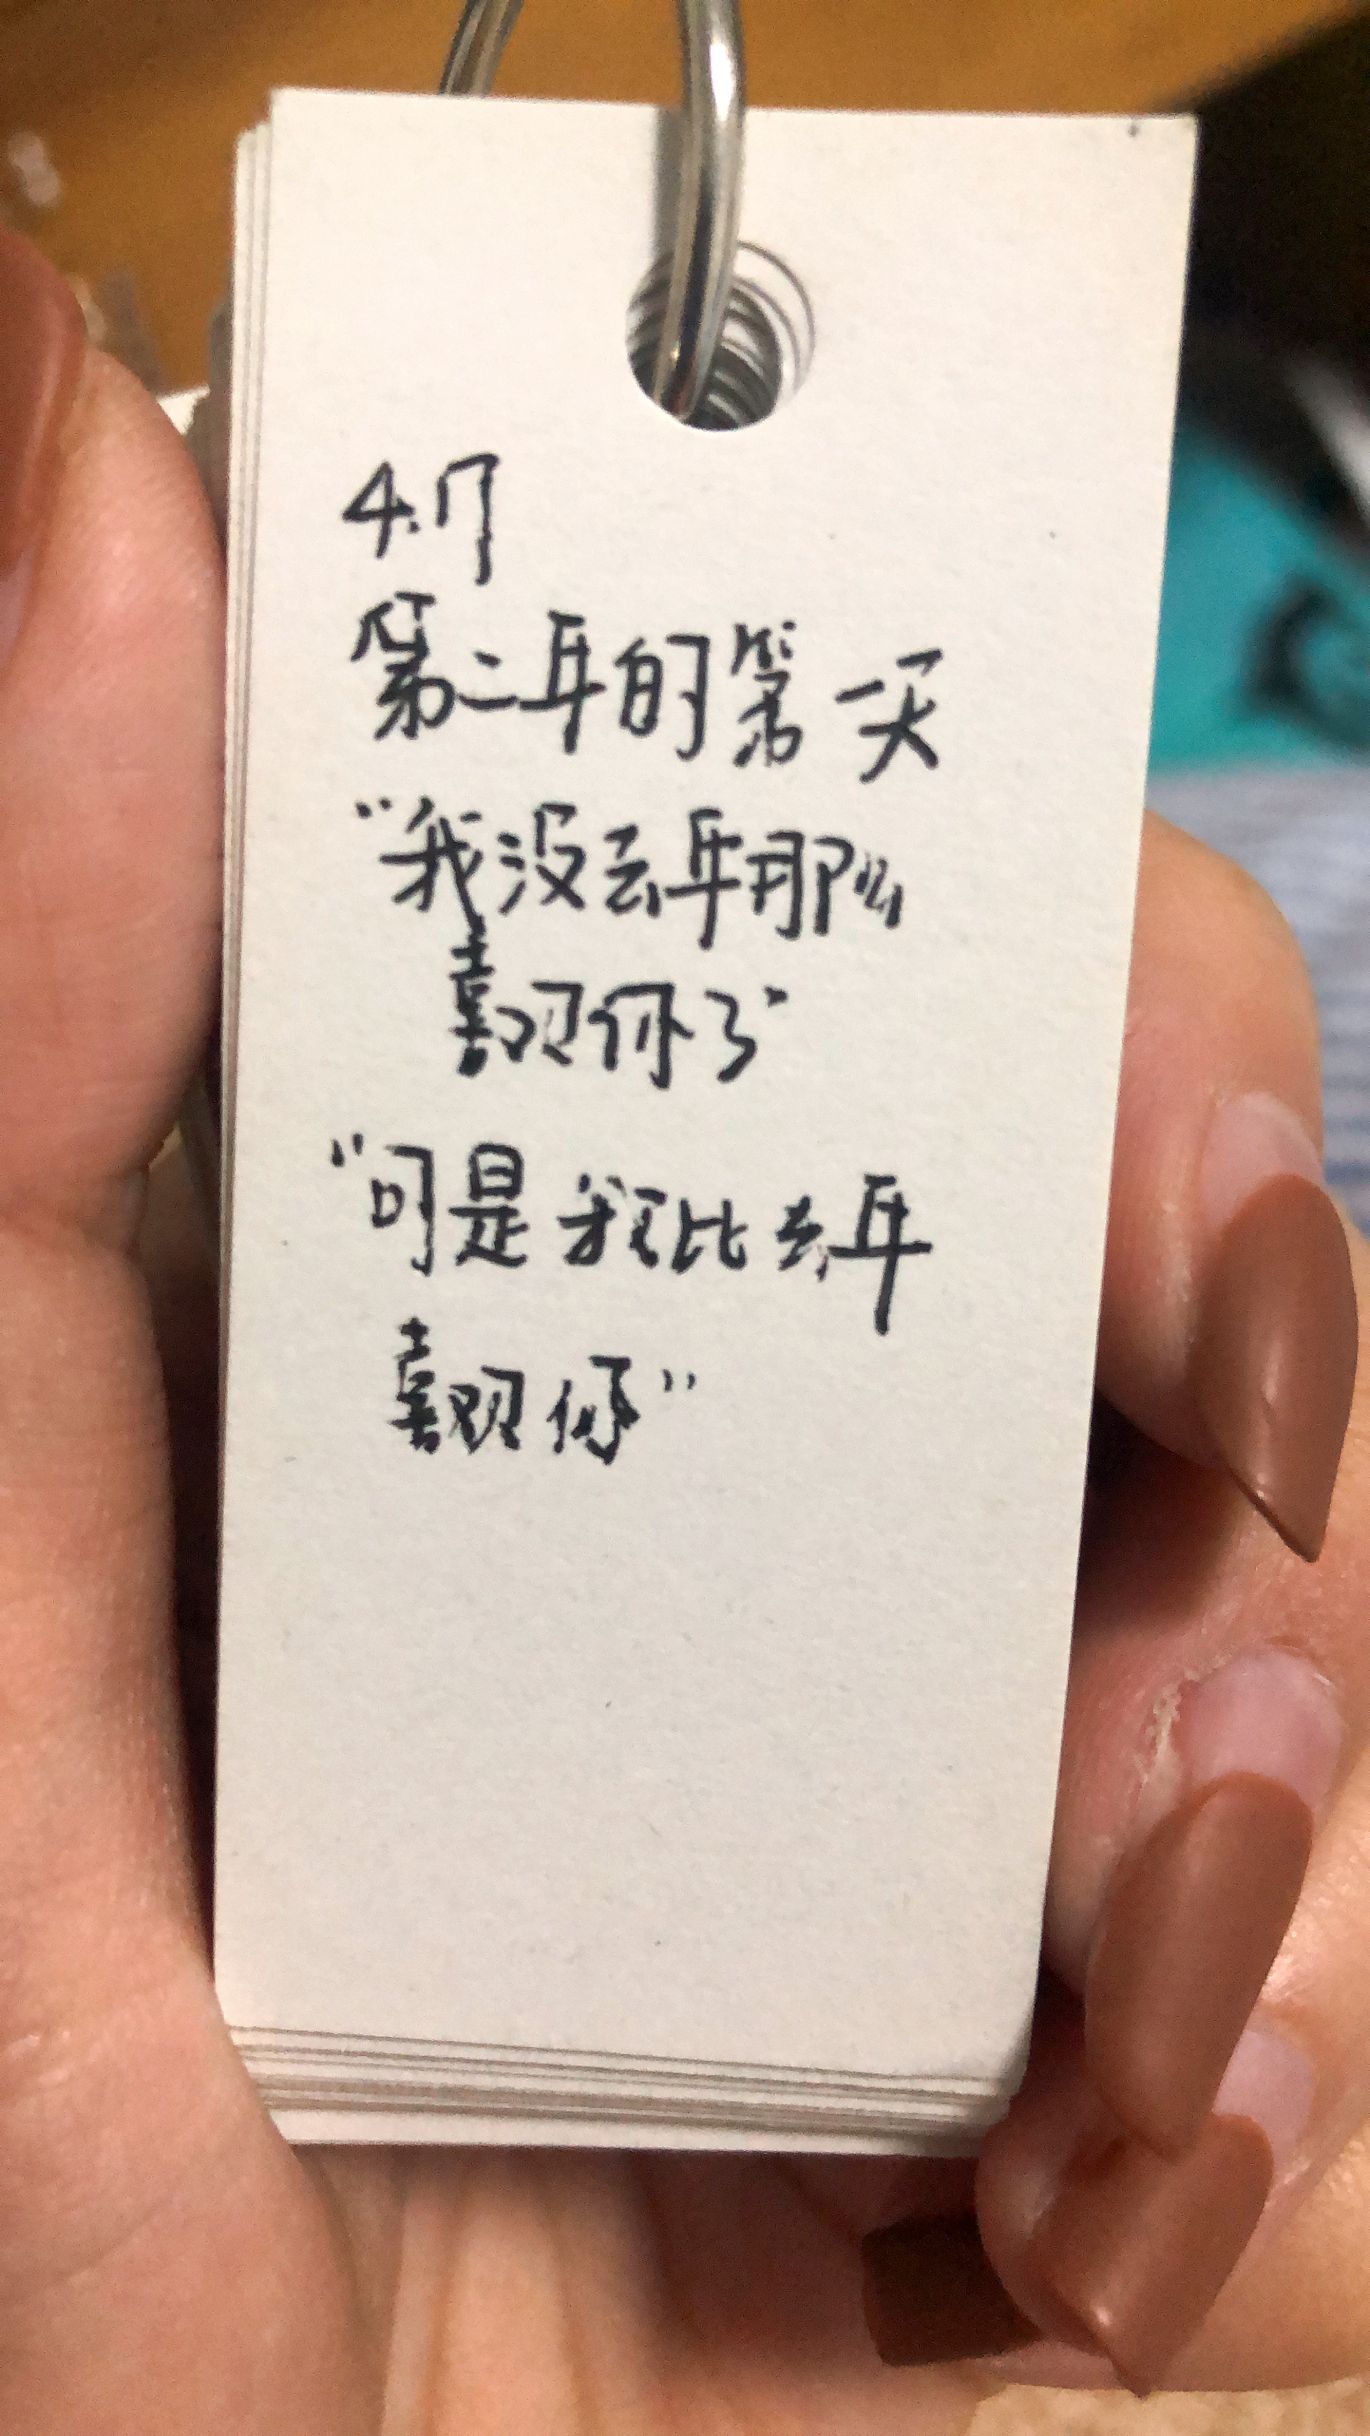 4.17
第二年的第一天
“我没去年那么
喜欢你了”
“可是我比去年
喜欢你”